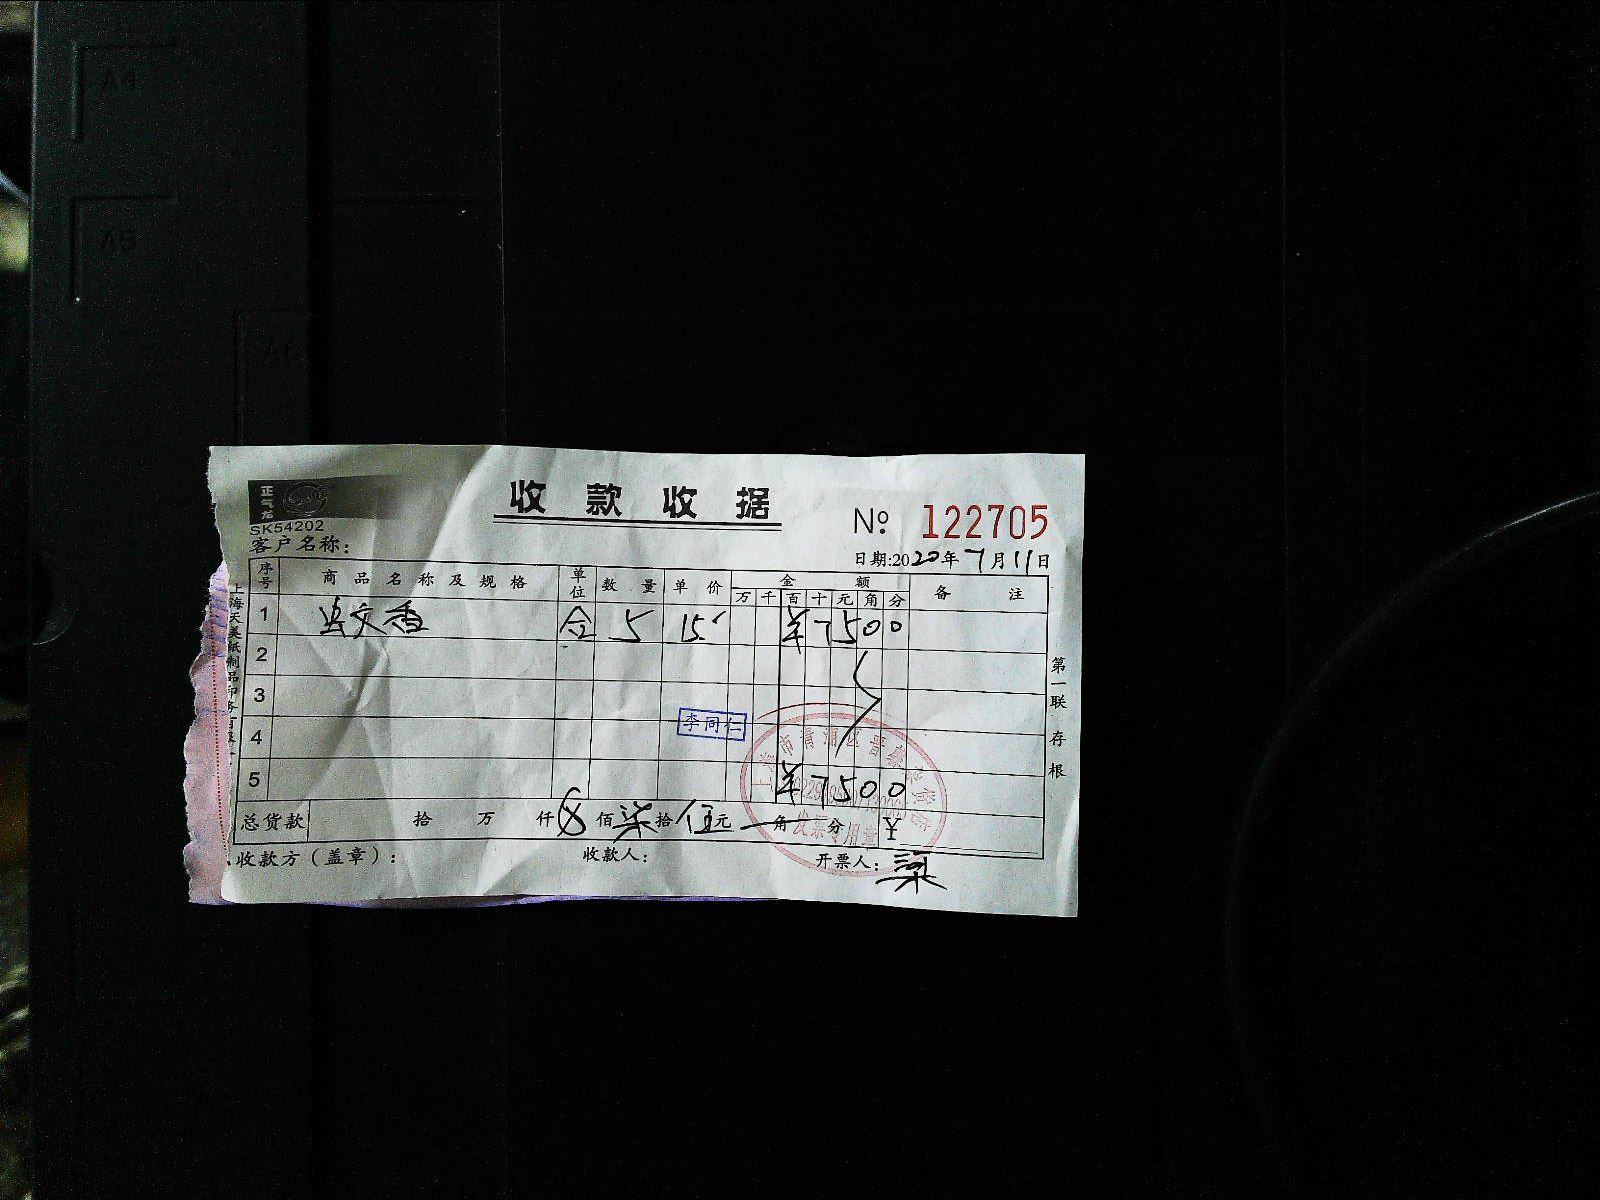 A4
A5
A6
正气龙
SK54202
收款收据
№ 122705
客户名称：
日期:2020年7月11日
序号 商品名称及规格 单位 数量 单价 金额 备注
万 千 百 十 元 角 分
1 蚊香 合 5 15 ¥7500
2
3
李同仁
4
5 ¥7500
总货款 拾 万 仟 佰 柒 拾 伍 元 角 分 ¥
收款方（盖章）： 收款人： 开票人：
第一联存根
上海天美纸制品印务有限
上海市青浦区
发票专用章